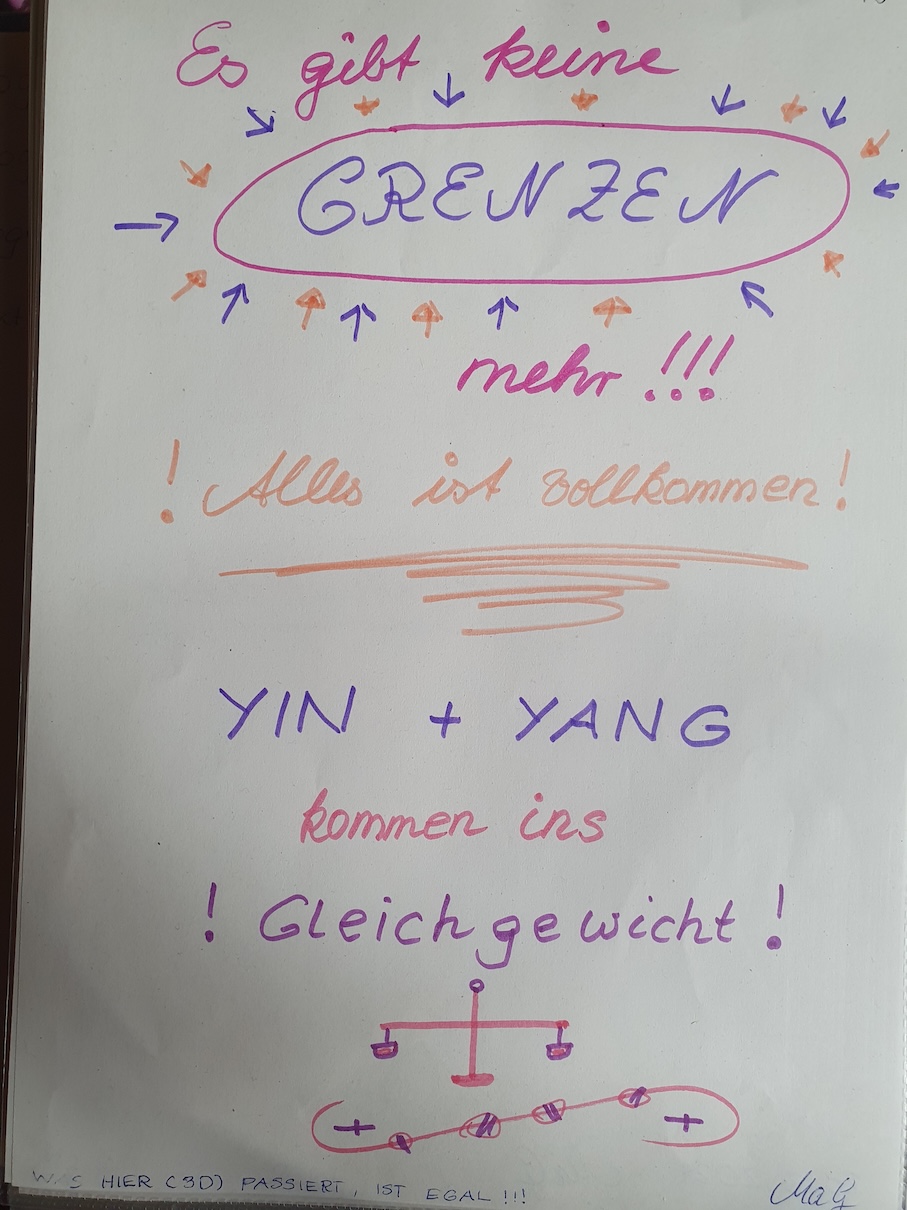 Es gibt keine
GRENZEN
mehr!!!
! Alles ist vollkommen!
YIN + YANG
kommen ins
! Gleichgewicht!
+ +
WAS HIER (3D) PASSIERT, IST EGAL!!!
MaG